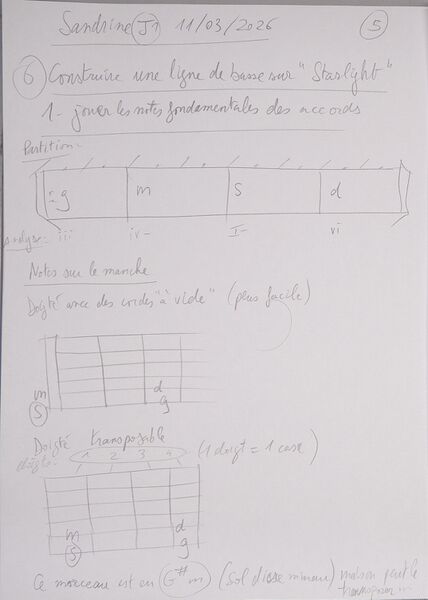 Sandrine J1 11/03/2026 5
6 Construire une ligne de basse sur "Starlight"
1- jouer les notes fondamentales des accords
Partition:
g m s d
analyse: iii iv- I- vi
Notes sur le manche
Doigté avec des cordes "à vide" (plus facile)
m
d
S g
Doigté transposable
doigts: 1 2 3 4 (1 doigt = 1 case)
m d
S g
Ce morceau est en G#m (sol dièse mineur) mais on peut le
transposer